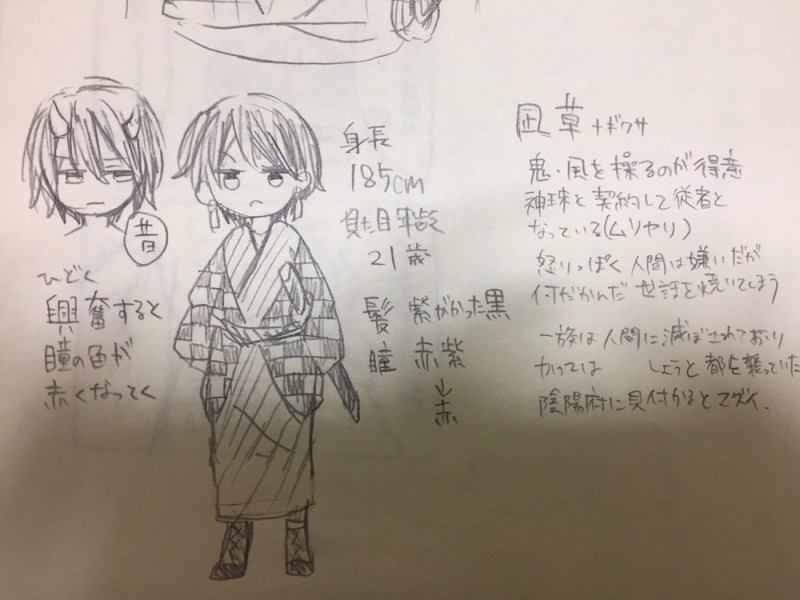 昔
ひどく
興奮すると
瞳の色が
赤くなってく
身長
185cm
見た目年齢
21歳
髪 紫がかった黒
瞳 赤紫
↓
赤
凪草 ナギクサ
鬼・風を操るのが得意
神珠と契約して従者と
なっている(ムリヤリ)
怒りっぽく人間は嫌いだが
何だかんだ世話を焼いてしまう
一族は人間に滅ぼされており
かつては しようと都を襲っていた
陰陽府に見付かるとマズイ.